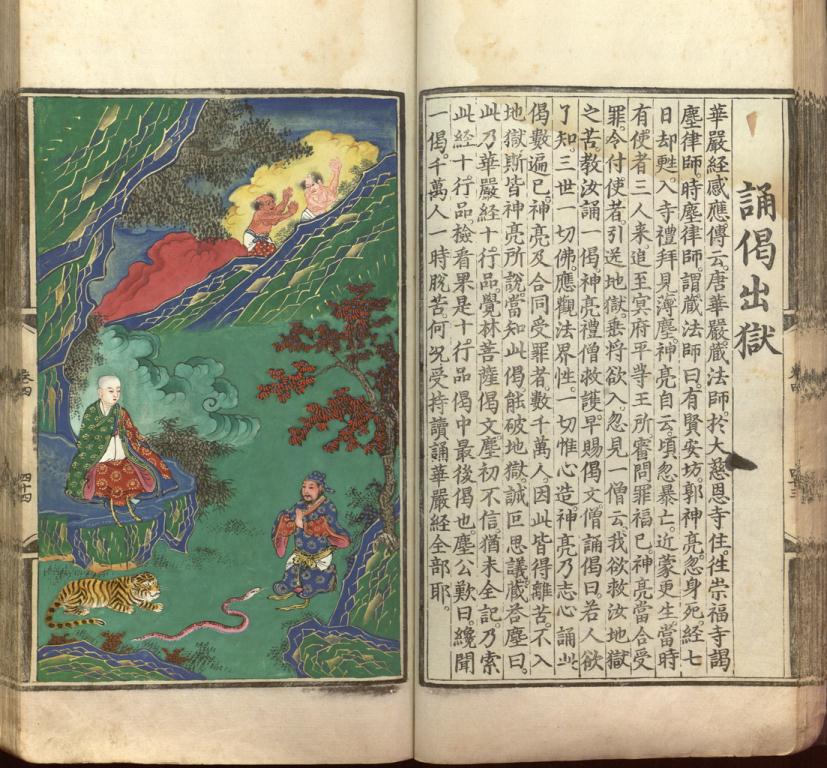 誦偈出獄
華嚴經感應傳云。唐華嚴藏法師。於大慈恩寺住。徃崇福寺謁
塵律師。時塵律師。謂藏法師曰。有賢安坊。郭神亮。忽身死經七
日却甦。入寺禮拜見薄塵。神亮自云。頃忽暴亡。近蒙更生。當時
有使者三人來。追至冥府平等王所。審問罪福已。神亮當合受
罪。令付使者。引送地獄。垂將欲入。忽見一僧云。我欲救汝地獄
之苦。教汝誦一偈。神亮禮僧救護。早賜偈文。僧誦偈曰。若人欲
了知。三世一切佛。應觀法界性。一切惟心造。神亮乃志心誦此
偈數遍已。神亮及合同受罪者。數千萬人。因此皆得離苦。不入
地獄。斯皆神亮所說。當知此偈能破地獄。誠叵思議。藏荅塵曰。
此乃華嚴經十行品。覺林菩薩偈文。塵初不信。猶未全記。乃索
此經十行品。檢看果是十行品偈中最後偈也。塵公歎曰。纔聞
一偈。千萬人一時脫苦。何況受持讀誦華嚴經全部耶。
卷四
四十四
四十三